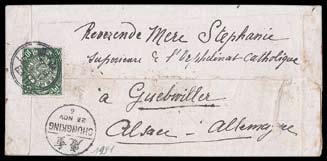 Reverende Mere Stéphanie
Superieure de l'Orphelinat Catholique
à Guebwiller
Alsace - Allemagne
CHUNGKING
22 NOV